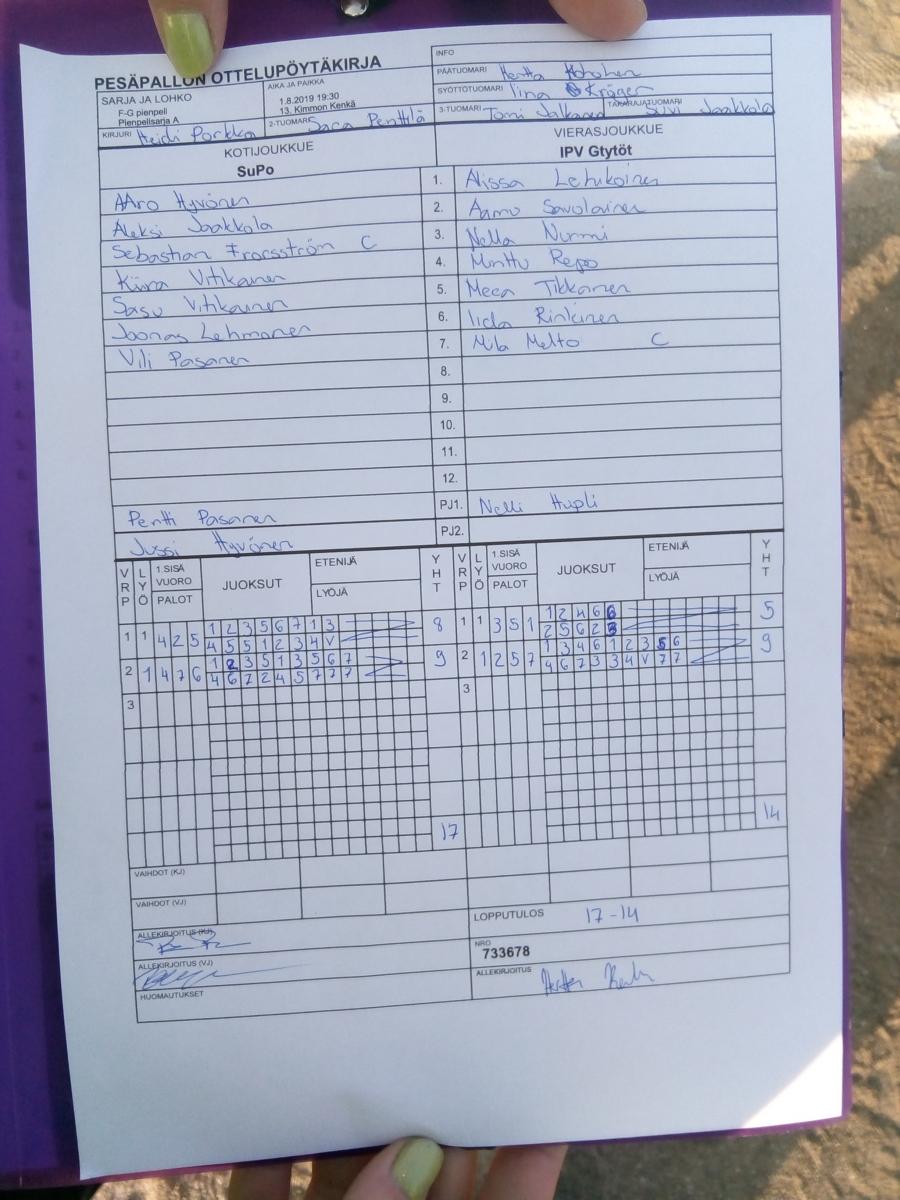 PESÄPALLON OTTELUPÖYTÄKIRJA
INFO
SARJA JA LOHKO
F-G pienpeli
Pienpelisarja A
AIKA JA PAIKKA
1.8.2019 19:30
13. Kimmon Kenkä
PÄÄTUOMARI Hertta
SYÖTTÖTUOMARI Iina Kröger
KIRJURI Heidi Porkka
2-TUOMARI Sara Penttilä
3-TUOMARI Tomi
TAKARAJATUOMARI Suvi Jaakkola
KOTIJOUKKUE
SuPo
VIERASJOUKKUE
IPV Gtytöt
AAro Hyvönen 1. Alissa Lehikoinen
Aleksi Jaakkola 2. Aamu Savolainen
Sebastian Frorsström C 3. Nella Nurmi
Kiira Vitikainen 4. Minttu Repo
Sasu Vitikainen 5. Meea Tikkanen
Joonas Lehmonen 6. Iida Rinkinen
Vili Pasanen 7. Mila Melto C
8.
9.
10.
11.
12.
Pentti Pasanen PJ1. Nelli Hupli
Jussi Hyvönen PJ2.
VRP LYÖ 1.SISÄ VUORO PALOT JUOKSUT ETENIJÄ LYÖJÄ YHT VRP LYÖ 1.SISÄ VUORO PALOT JUOKSUT ETENIJÄ LYÖJÄ YHT
1 2 3 5 6 7 1 3 1 2 4 6 6
1 1 4 2 5 4 5 5 1 2 3 4 V 8 1 1 3 5 1 2 5 6 2 3 5
1 2 3 5 1 3 5 6 7 1 3 4 6 1 2 3 5 6
2 1 4 7 6 4 6 7 2 4 5 7 7 7 9 2 1 2 5 7 4 6 7 3 3 4 V 7 7 9
3 3
17 14
VAIHDOT (KJ)
VAIHDOT (VJ)
ALLEKIRJOITUS (KJ)
LOPPUTULOS 17-14
ALLEKIRJOITUS (VJ)
NRO
733678
HUOMAUTUKSET
ALLEKIRJOITUS